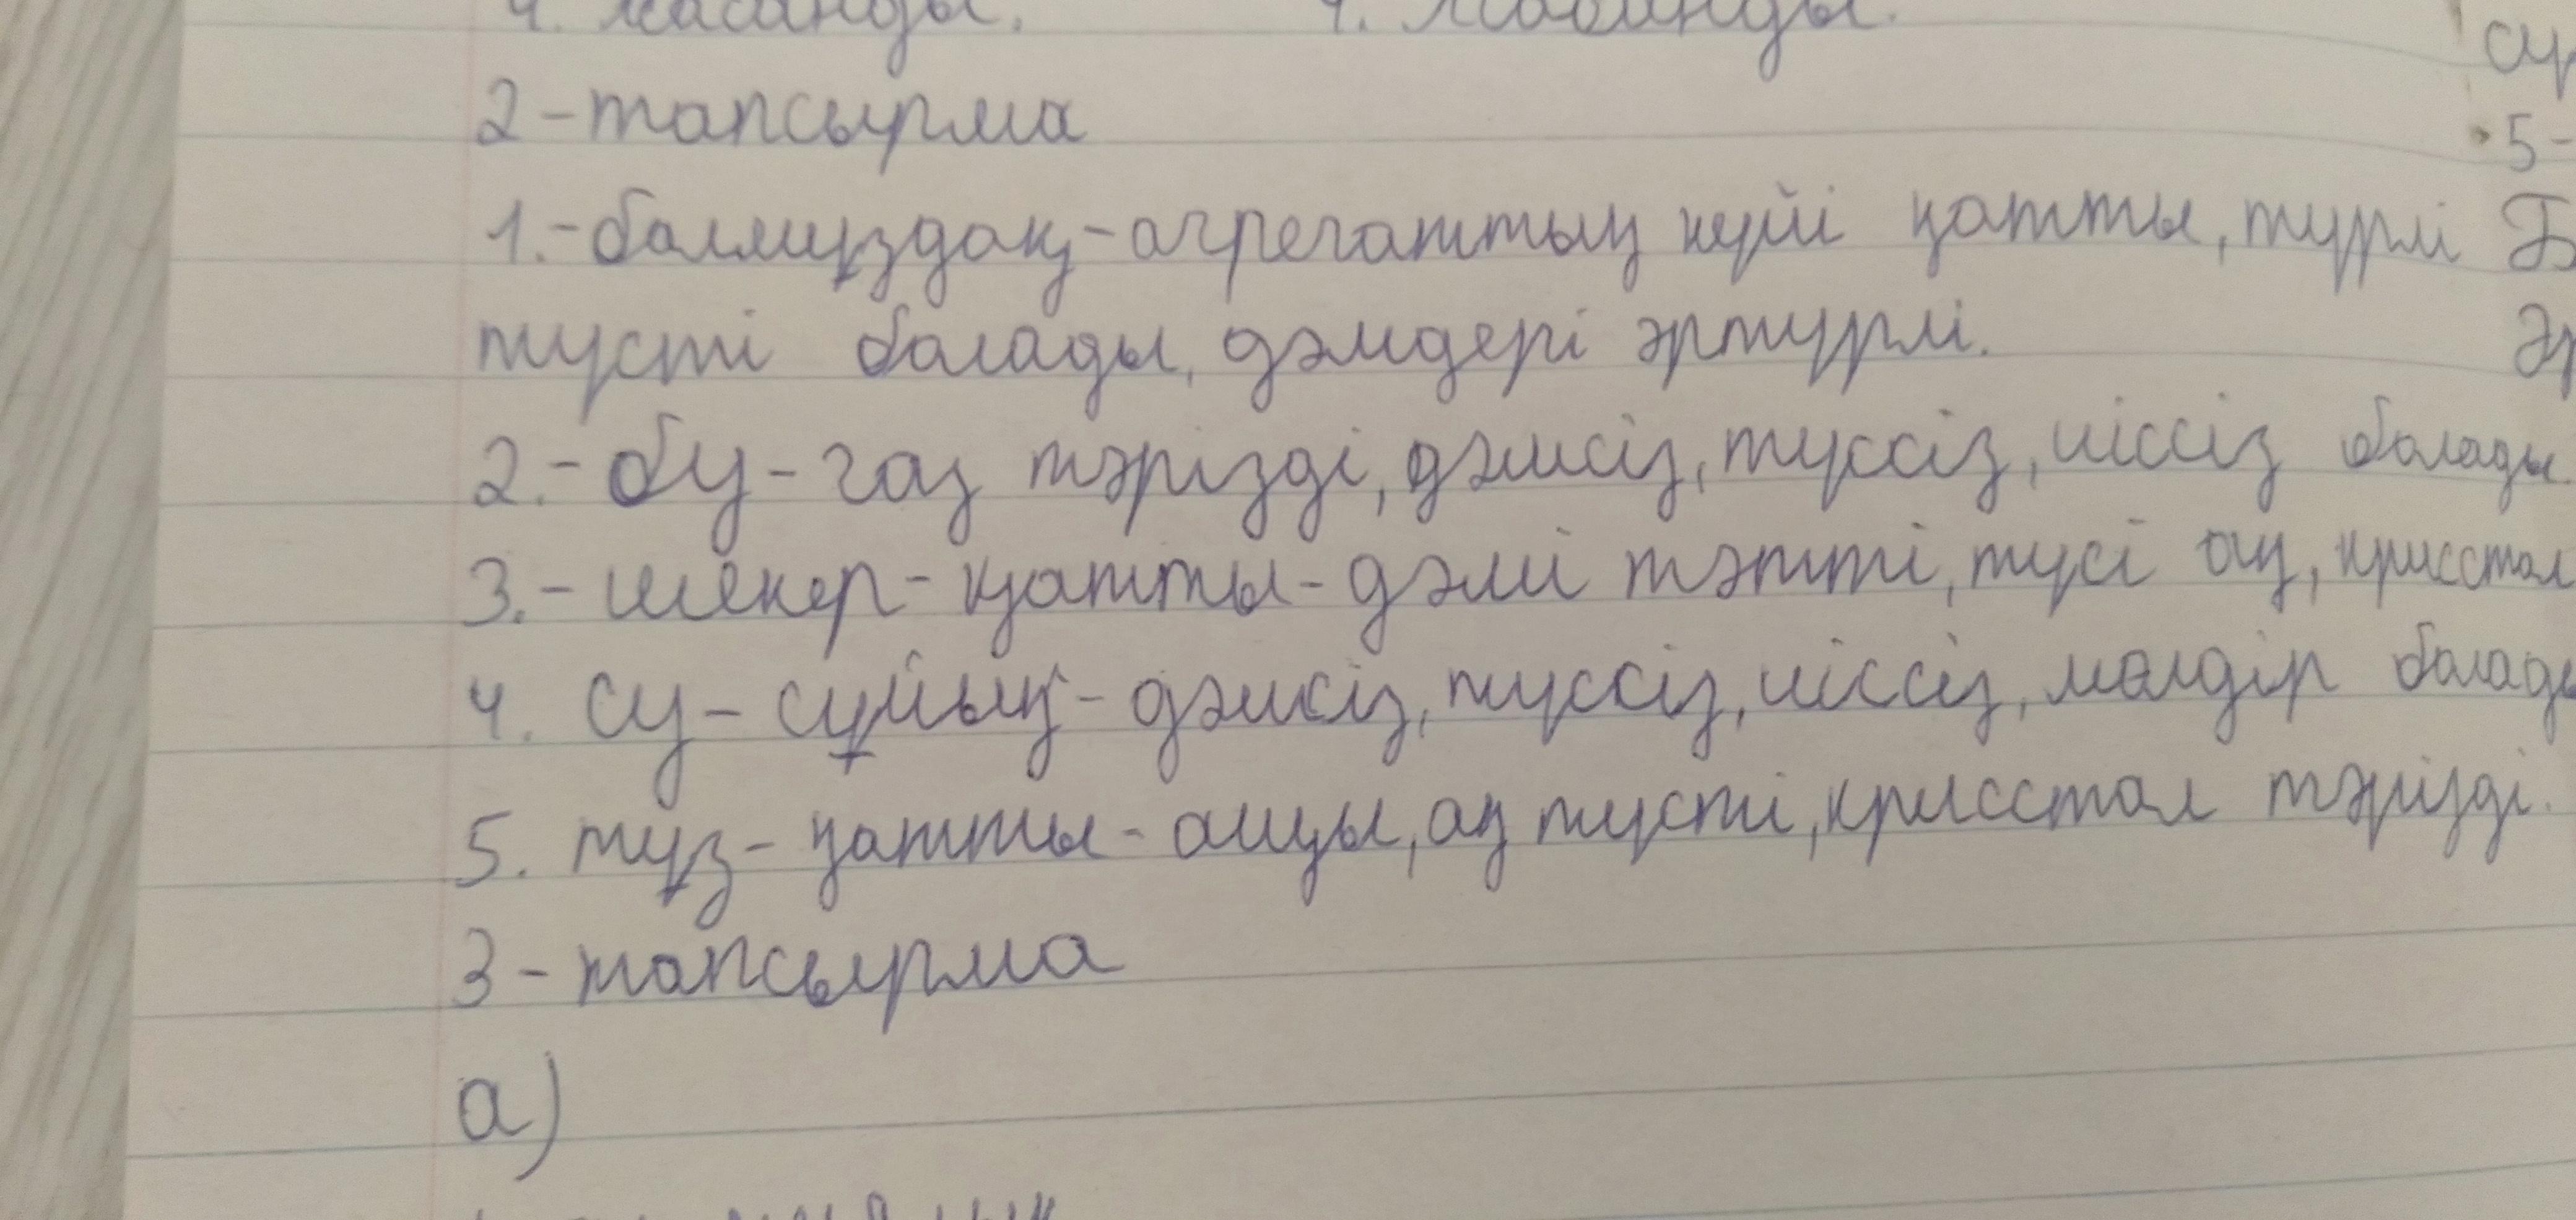 4. жасанды. 4. жасанды.
2-тапсырма
1.-балмұздақ-агрегаттың күйі қатты, түрлі
түсті болады, дәмдері әртүрлі.
2.-бу-газ тәрізді, дәмсіз, түссіз, иіссіз болады.
3.-шекер-қатты-дәмі тәтті, түсі ақ, крисстал
4. су-сұйық-дәмсіз, түссіз, иіссіз, мөлдір болады
5. тұз-қатты-ащы, ақ түсті, крисстал тәрізді.
3-тапсырма
а)
5-